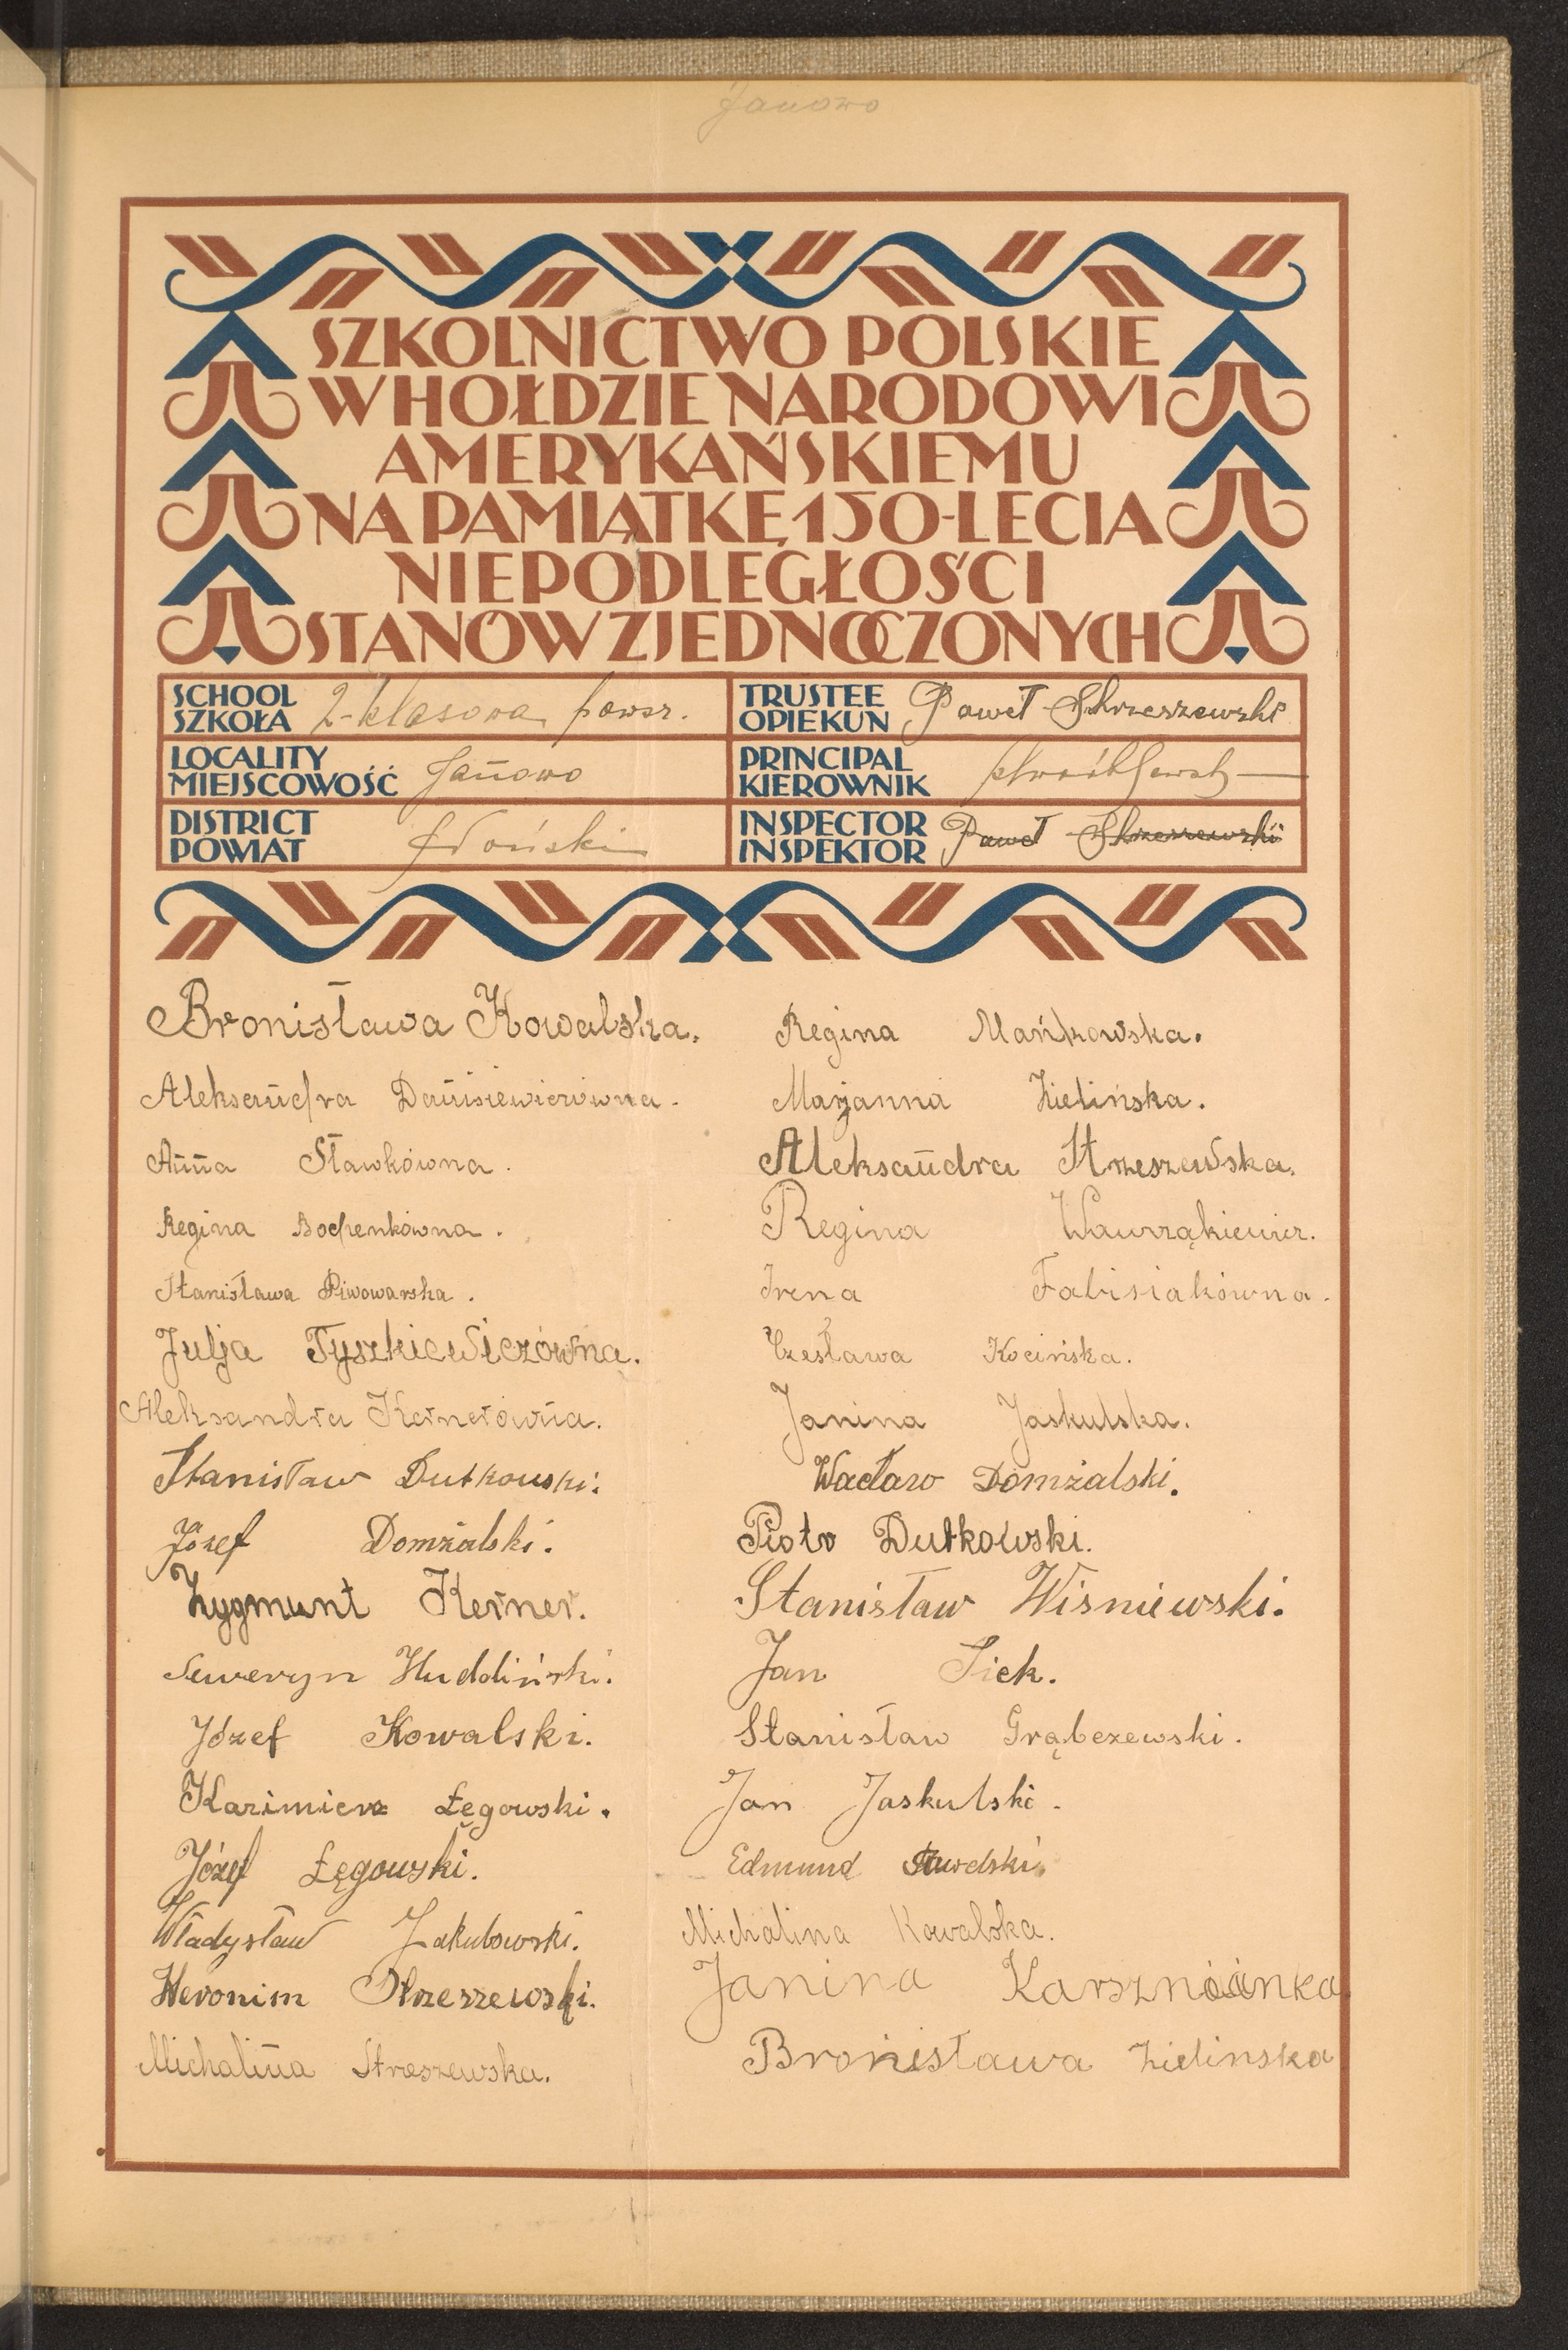 Janowo
SZKOLNICTWO POLSKIE
W HOŁDZIE NARODOWI
AMERYKAŃSKIEMU
NA PAMIĄTKĘ 150-LECIA
NIEPODLEGŁOŚCI
STANÓW ZJEDNOCZONYCH
SCHOOL
SZKOŁA 2-klasowa powsz.
TRUSTEE
OPIEKUN Paweł Skrzeszewski
LOCALITY
MIEJSCOWOŚĆ Janowo
PRINCIPAL
KIEROWNIK
DISTRICT
POWIAT Płoński
INSPECTOR
INSPEKTOR Paweł Skrzeszewski
Bronisława Kowalska.
Aleksandra Danisiewiczówna.
Anna Sławkówna.
Regina Bochenkówna.
Stanisława Piwowarska.
Julja Tyszkiewiczówna.
Aleksandra Kernerówna.
Stanisław Dutkowski.
Józef Domżalski.
Zygmunt Kerner.
Seweryn
Józef Kowalski.
Kazimierz Łęgowski.
Józef Łęgowski.
Władysław Jakubowski.
Heronim Strzeszewski.
Michalina Streszewska.
Regina Mańkowska.
Marjanna Zielińska.
Aleksandra Strzeszewska.
Regina Wawrząkiewicz.
Irena Fabisiakówna.
Czesława Kocińska.
Janina Jaskulska.
Wacław Domżalski.
Piotr Dutkowski.
Stanisław Wisniewski.
Jan Siek.
Stanisław Grąbczewski.
Jan Jaskulski.
Edmund
Michalina Kowalska.
Janina
Bronisława Zielinska